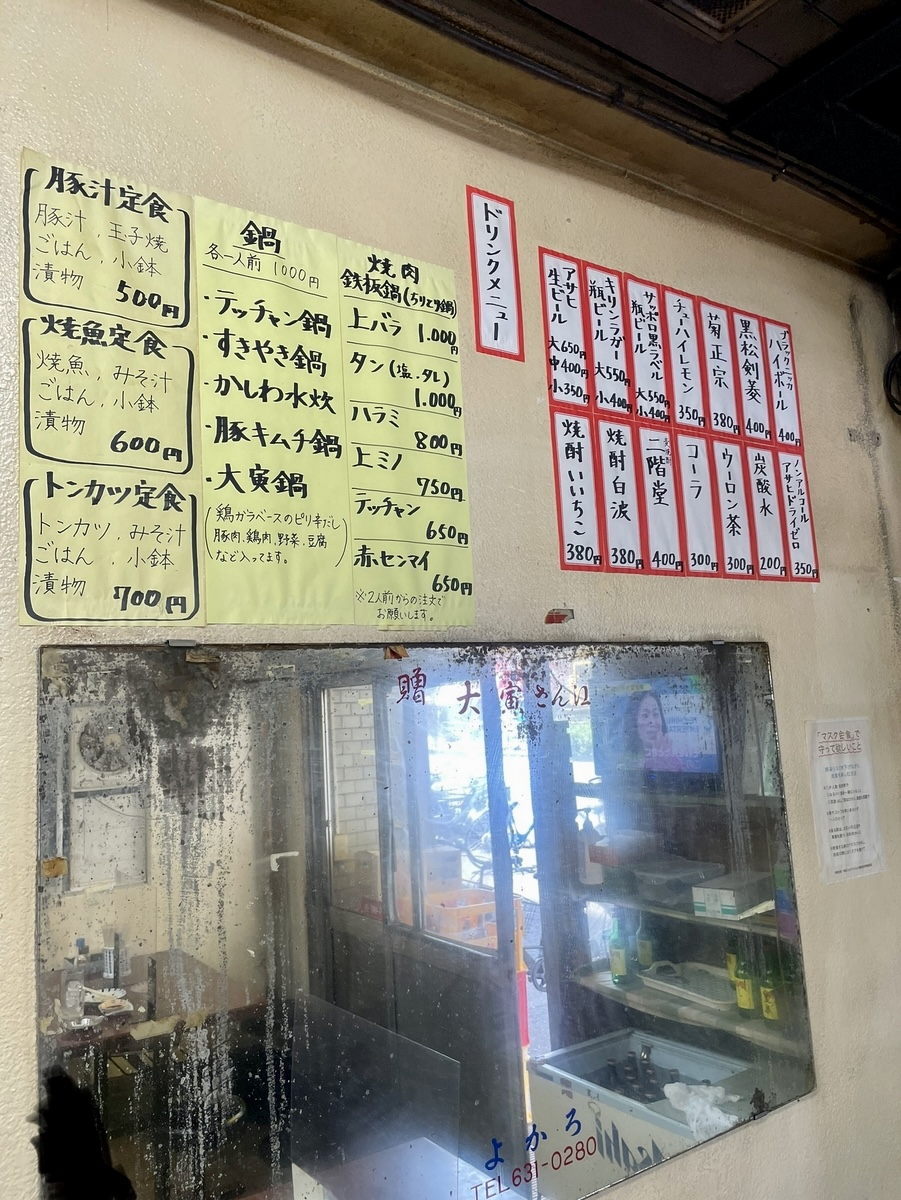 豚汁定食
豚汁、玉子焼
ごはん、小鉢
漬物
500円
焼魚定食
焼魚、みそ汁
ごはん、小鉢
漬物
600円
トンカツ定食
トンカツ、みそ汁
ごはん、小鉢
漬物
700円
鍋
各一人前 1000円
・テッチャン鍋
・すきやき鍋
・かしわ水炊
・豚キムチ鍋
・大寅鍋
(鶏ガラベースのピリ辛だし
豚肉、鶏肉、野菜、豆腐
など入ってます。)
焼肉
鉄板鍋(ちりとり鍋)
上バラ 1.000円
タン(塩.タレ)
1.000円
ハラミ
800円
上ミノ
750円
テッチャン
650円
赤センマイ
650円
※2人前からの注文で
お願いします。
ドリンクメニュー
アサヒ
生ビール
大650円
中400円
小350円
キリンラガー
瓶ビール
大550円
小400円
サッポロ黒ラベル
瓶ビール
大550円
小400円
チューハイレモン
350円
菊正宗
380円
黒松剣菱
400円
ブラックニッカ
ハイボール
400円
焼酎いいちこ
380円
焼酎白波
380円
麦焼酎
二階堂
400円
コーラ
300円
ウーロン茶
300円
炭酸水
200円
ノンアルコール
アサヒドライゼロ
350円
贈 大寅さん江
よかろ
TEL631-0280
Asahi
「マスク会食」で
守って欲しいこと